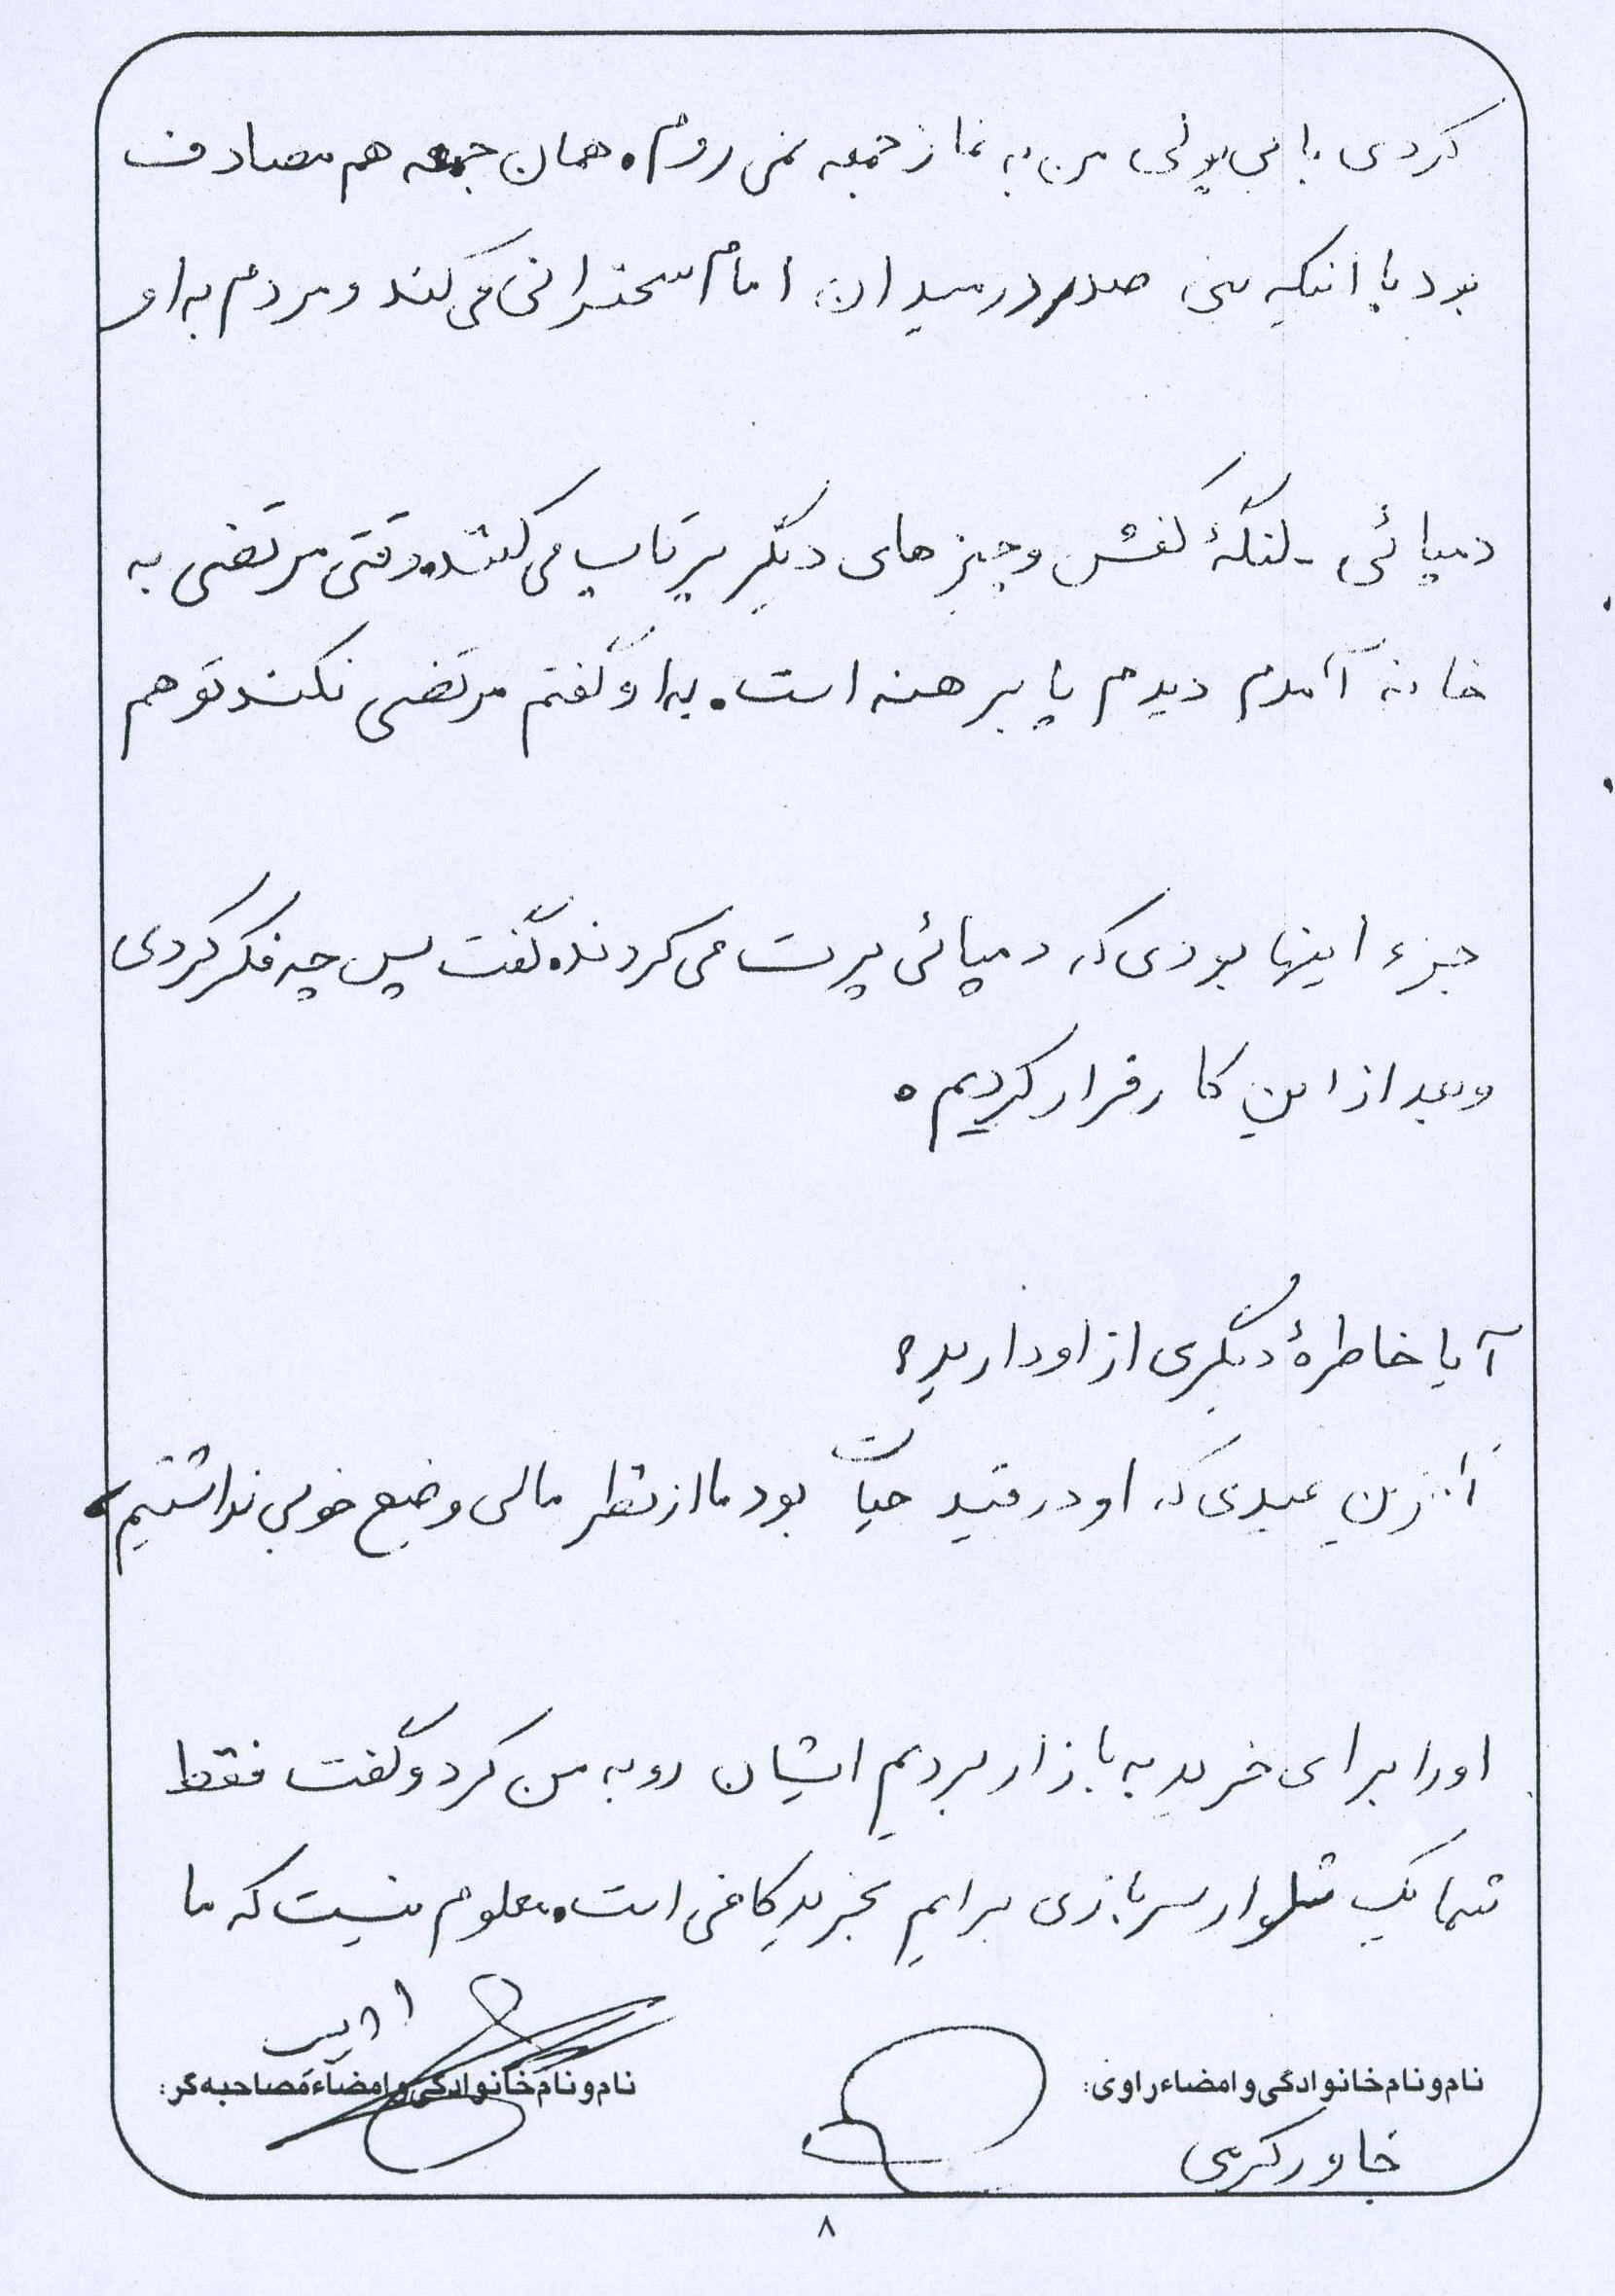 کردی با بی پولی من به نماز جمعه نمی روم. همان جمعه هم مصادف
بود با اینکه بنی صدر در میدان امام سخنرانی می کند و مردم به او
دمپائی - لنگهٔ کفش و چیزهای دیگر پرتاب می کنند. وقتی مرتضی به
خانه آمدم دیدم پا برهنه است. به او گفتم مرتضی نکند تو هم
جزء اینها بودی که دمپائی پرت می کردند. گفت پس چه فکر کردی
وبعد از این کار فرار کردیم.
آیا خاطرهٔ دیگری از او دارید؟
آخرین عیدی که او در قید حیات بود ما از نظر مالی وضع خوبی نداشتیم.
او را برای خرید به بازار بردیم ایشان رو به من کرد و گفت فقط
شما یک شلوار سربازی برایم بخرید کافی است. معلوم نیست که ما
نام و نام خانوادگی و امضاء راوی:
نام و نام خانوادگی و امضاء مصاحبه گر:
خاور کرمی
۸